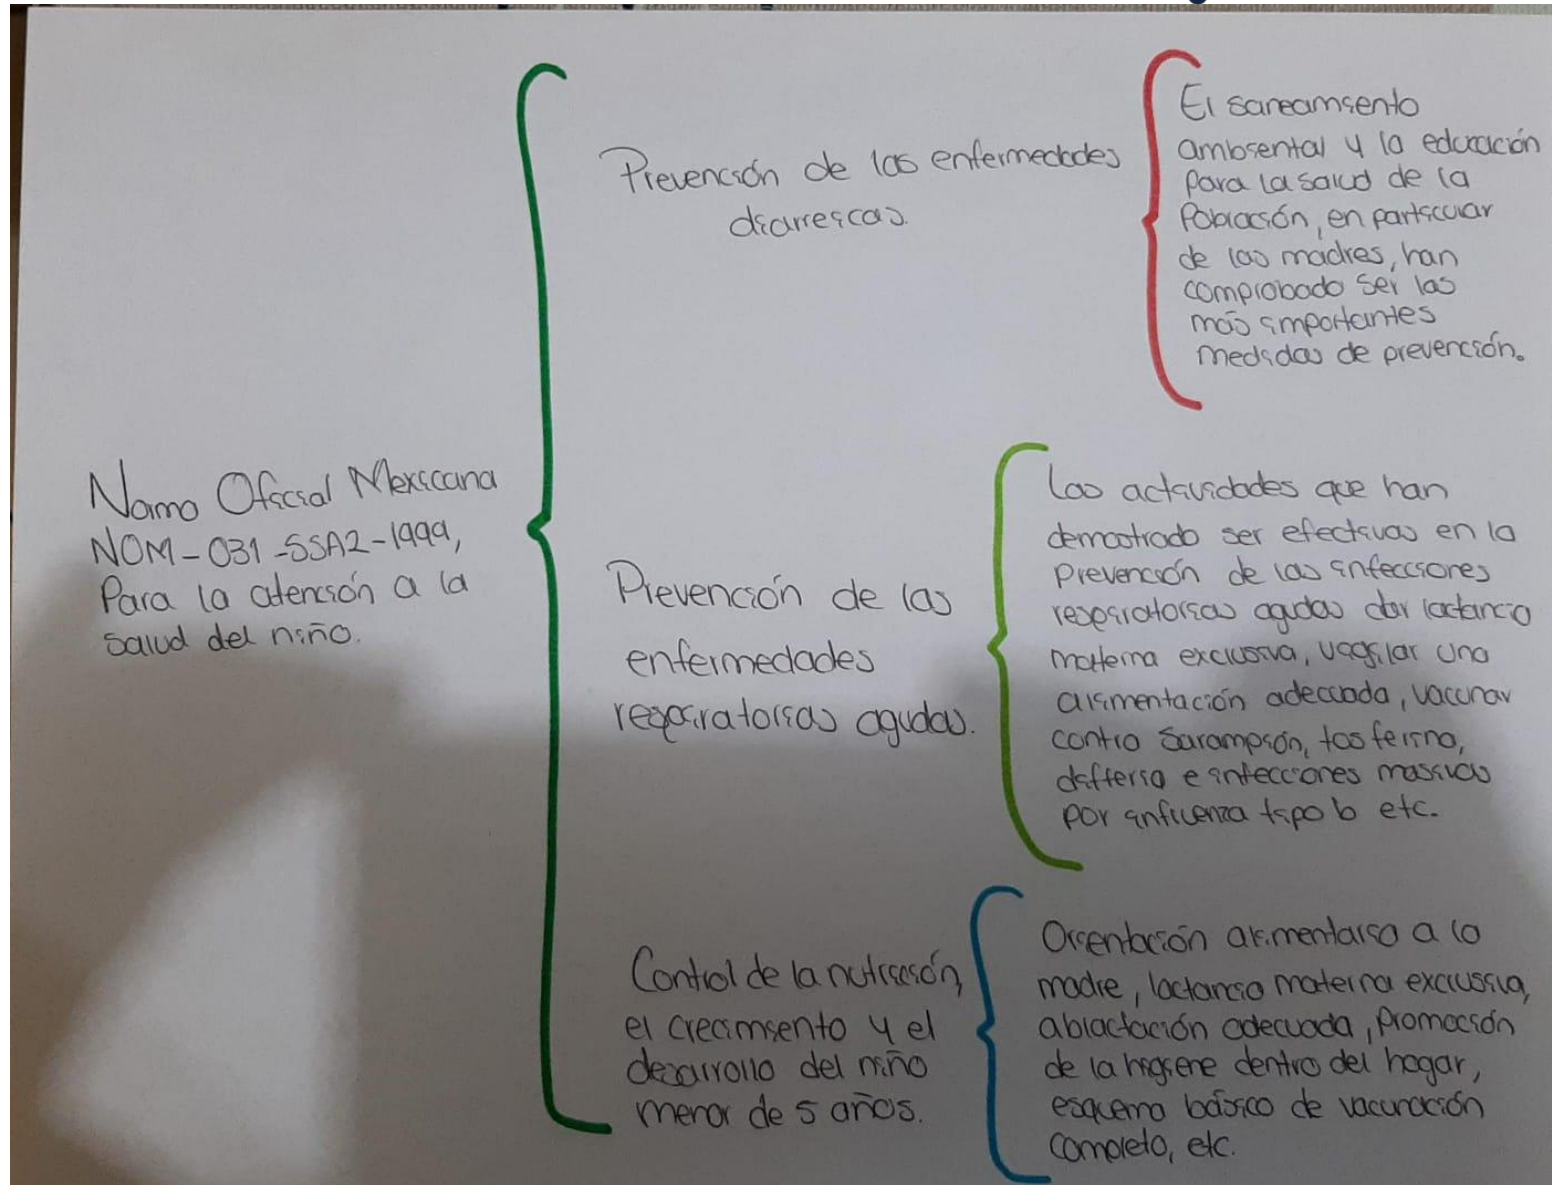 Norma Oficial Mexicana
NOM-031-SSA2-1999,
Para la atención a la
salud del niño.
Prevención de las enfermedades
diarreicas.
El saneamiento
ambiental y la educación
para la salud de la
Población, en particular
de las madres, han
comprobado ser las
más importantes
medidas de prevención.
Prevención de las
enfermedades
respiratorias agudas.
Las actividades que han
demostrado ser efectivas en la
prevención de las infecciones
respiratorias agudas dar lactancia
materna exclusiva, vigilar una
alimentación adecuada, vacunar
contra Sarampión, tosferina,
difteria e infecciones massivas
por influenza tipo b etc.
Control de la nutrición,
el crecimiento y el
desarrollo del niño
menor de 5 años.
Orientación alimentaria a la
madre, lactancia materna exclusiva,
ablactación adecuada, promoción
de la higiene dentro del hogar,
esquema básico de vacunación
completo, etc.